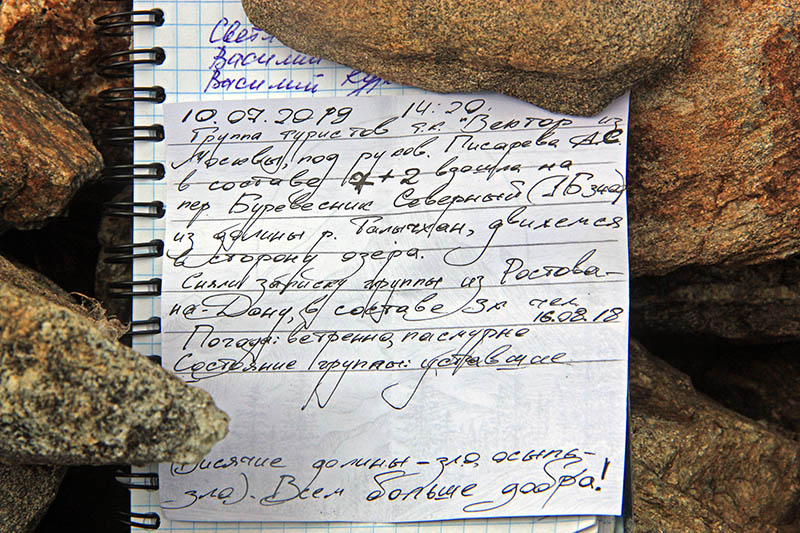 Светл
Василий
Василий Кур
10.07.2019 14:20.
Группа туристов т.к. "Вектор из
Москвы, под руков. Писарева А.С.
в составе 7+2 взошла на
пер Буревестник Северный (1Б зна)
из долины р. Талычхан, движемся
в сторону озера.
Сняли записку группы из Ростова-
на-Дону, в составе 3х чел
16.08.18
Погода: ветренно, пасмурно
Состояние группы: уставшие
(Висячие долины - зло, осыпь-
-зло). Всем больше добра!